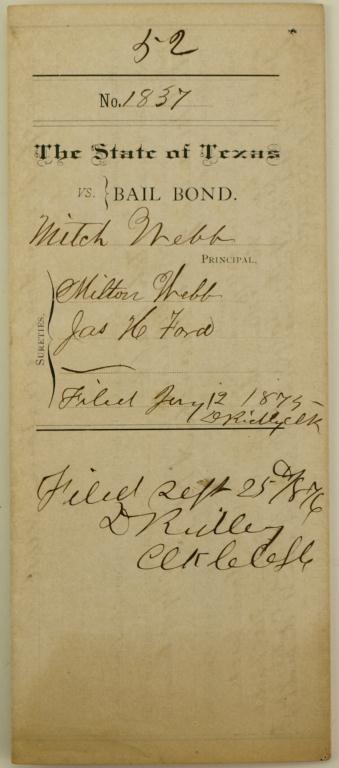 52
No. 1837
The State of Texas
VS. } BAIL BOND.
Mitch Webb
PRINCIPAL,
SURETIES.
Milton Webb
Jas H Ford
Filed Jany 12 1875
D Ridley Clk
Filed Sept 25th 1876
D Ridley
Clk